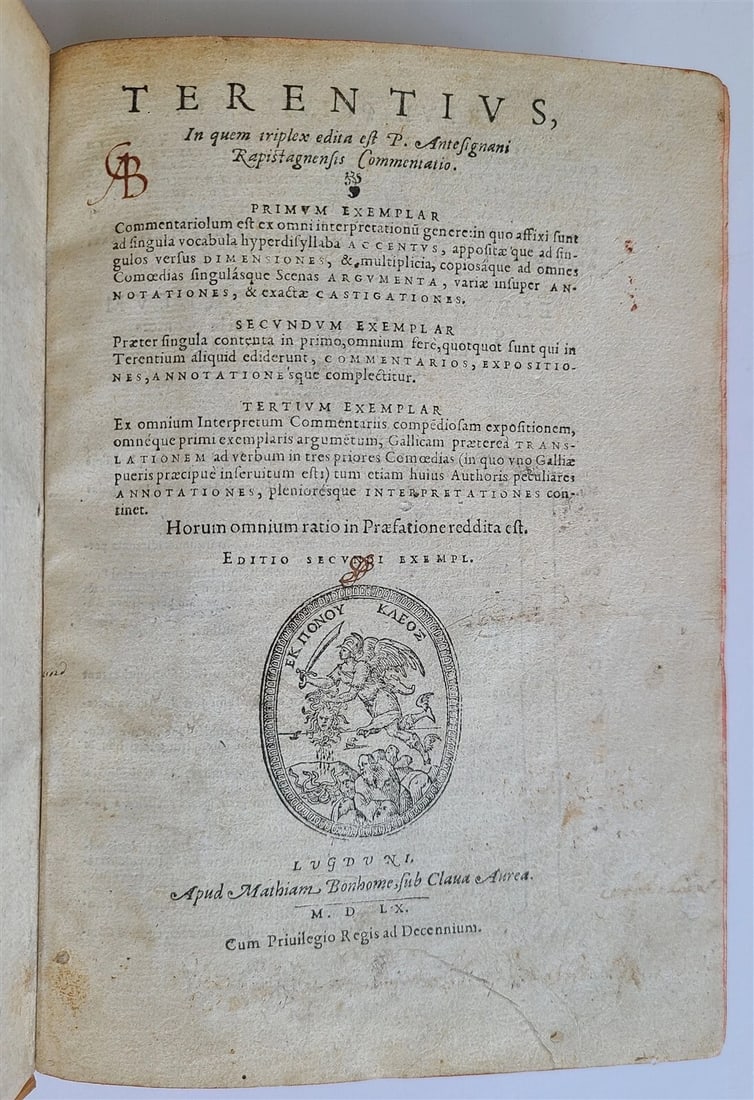 TERENTIVS,
In quem triplex edita est P. Antesignani
Rapistagnensis Commentatio.
AB
PRIMVM EXEMPLAR
Commentariolum est ex omni interpretationũ genere: in quo affixi sunt
ad singula vocabula hyperdisyllaba ACCENTVS, appositæ que ad sin-
gulos versus DIMENSIONES, & multiplicia, copiosáque ad omnes
Comœdias singulásque Scenas ARGVMENTA, variæ insuper AN-
NOTATIONES, & exactæ CASTIGATIONES.
SECVNDVM EXEMPLAR
Præter singula contenta in primo, omnium ferè, quotquot sunt qui in
Terentium aliquid ediderunt, COMMENTARIOS, EXPOSITIO-
NES, ANNOTATIONE'sque complectitur.
TERTIVM EXEMPLAR
Ex omnium Interpretum Commentariis compẽdiosam expositionem,
omnéque primi exemplaris argumẽtum, Gallicam præterea TRANS-
LATIONEM ad verbum in tres priores Comœdias (in quo vno Galliæ
pueris præcipuè inseruitum est:) tum etiam huius Authoris peculiares
ANNOTATIONES, plenioresque INTERPRETATIONES con-
tinet.
Horum omnium ratio in Præfatione reddita est.
EDITIO SECVNDI EXEMPL.
ΕΚ ΠΟΝΟΥ ΚΛΕΟΣ
LVGDVNI,
Apud Mathiam Bonhome, sub Claua Aurea.
M. D LX.
Cum Priuilegio Regis ad Decennium.